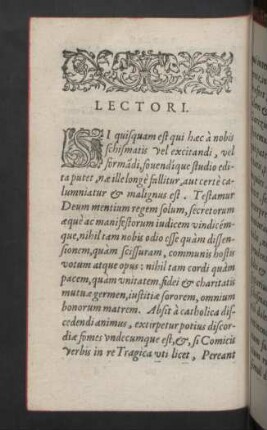 LECTORI.
SI quisquam est qui hæc à nobis
schismatis vel excitandi, vel
formādi, fouendique studio edi-
ta putet, næ ille longè fallitur, aut certè ca-
lumniatur & malignus est. Testamur
Deum mentium regem solum, secretorum
æquè ac manifestorum iudicem vindicēm-
que, nihil tam nobis odio esse quàm dissen-
sionem, quàm scissuram, communis hostis
votum atque opus: nihil tam cordi quàm
pacem, quàm vnitatem, fidei & charitatis
mutuæ germen, iustitiæ sororem, omnium
honorum matrem. Absit à catholica dis-
cedendi animus, extirpetur potius discor-
diæ fomes vndecumque est, &, si Comicis
verbis in re Tragica vti licet, Pereant